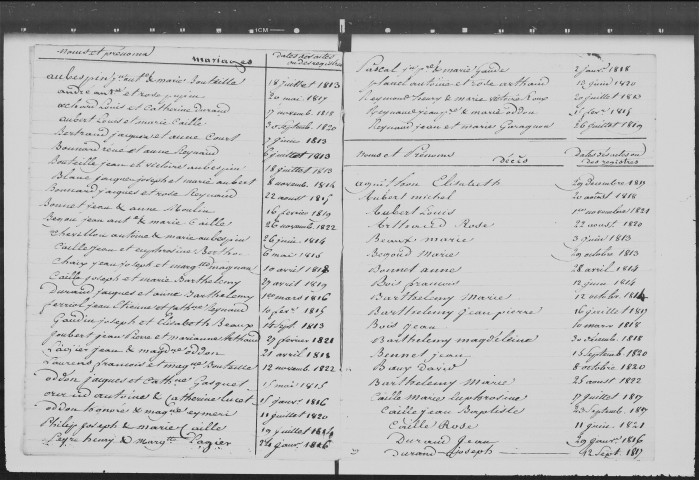 1CM
Noms et prénoms
Mariages
Dates des actes ou des registres
aubespin jn ant. & marie Bouteille 18 juillet 1813
andré ant. et rose 20 mai 1817
achard Louis et Catherine durand 7 novemb. 1818
aubert Louis et marie Caille 30 septemb. 1820
Bertrand jacques et anne Court 7 juin 1813
Bonnard rené et anne Reynaud 6 juillet 1813
Bouteille jean et victoire aubespin 18 juillet 1813
Blanc jacques joseph et marie aubert 8 novemb. 1814
Bonnard jacques et rose Reynaud 22 aoust 1815
Bonnet jean & anne Moulin 16 fevrier 1819
Begou jean ant. & marie Caille 26 novemb. 1822
Chevillon antoine & marie aubespin 26 juin 1814
Caille jean et euphrosine Berthe 6 mai 1816
Chaix jean joseph et marg.tte magnan 10 avril 1818
Caille joseph et marie Barthelemy 29 avril 1819
Durand jacques et anne Barthelemy 1er mars 1816
ferriol jean Etienne et Cathne Reynaud 10 fevr. 1815
Gaudin joseph et Elisabeth Beaux 14 sept 1813
joubert jean Pierre et marianne Arthaud 27 fevrier 1821
Lagier jean & magdne oddon 21 avril 1818
Laurens francois et magne Bouteille 12 novemb. 1822
oddon jacques et Cathne Josquet 15 mai 1815
antoine & Catherine Lucet 15 janv 1816
oddon honoré & magne eymeri 11 juillet 1820
Philip joseph & marie Caille 19 juillet 1824
Peyre henry & margtte Lagier 24 janv. 1826
Pascal jn pre & marie Gaude 2 janv. 1818
planel antoine et rose arthaud 10 juin 1820
Reymond henry & marie victoire Roux 20 juillet 1813
Reynaud jean pre & marie oddon 21 fevr 1815
Reynaud jean et marie Garagnon 26 juillet 1819
Noms et Prénoms
Décès
Dates des actes ou des registres
agnithon Elisabeth 29 decembre 1819
Aubert michel 20 aoust 1818
Aubert Louis 1er novembre 1821
Arthaud Rose 22 aoust 1820
Beaux marie 3 juin 1813
Begoud Marie 29 octobre 1813
Bonnet anne 28 avril 1814
Bois francois 12 juin 1814
Barthelemy Marie 12 octobre 1814
Barthelemy jean pierre 16 juillet 1817
Bois jean 10 mars 1818
Barthelemy magdelaine 30 decemb. 1818
Bennet jean 13 Septemb. 1820
Baux David 8 octobre 1820
Barthelemy Marie 25 aoust 1822
Caille Marie Euphrosine 17 juillet 1817
Caille jean Baptiste 23 Septemb. 1817
Caille Rose 11 juin 1821
Durand Jean 29 janv. 1816
Durand Joseph 12 Sept. 1817